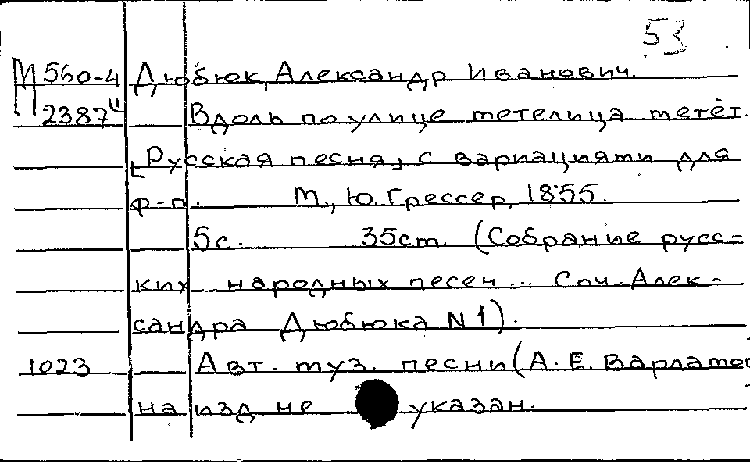 53
М 560-4 Дюбюк, Александр Иванович.
2387" Вдоль по улице метелица метёт.
[Русская песня, с вариациями для
ф-п. М., Ю. Грессер, 1855.
5с. 35cm. (Собрание русс-
ких народных песен.. Соч. Алек-
сандра Дюбюка N1).
1023 Авт. муз. песни (А.Е. Варламо
на изд не указан.